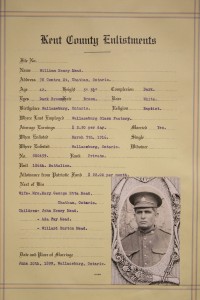 Kent County Enlistments
His No.
Name William Henry Mead.
Address Chatham, Ontario.
Age Height Complexion Dark.
Eyes Brown. Race White.
Birthplace Wallaceburg, Ontario. Religion Baptist.
Where Last Employed Wallaceburg Glass Factory.
Average Earnings $ per day. Married Yes.
When Enlisted March 7th, 1916. Single
Where Enlisted Wallaceburg, Ontario. Widower
No. Rank Private.
Unit Battalion.
Allowance from Patriotic Fund $ per month.
Next of Kin
Wife: Mrs. Mary George Mead.
Chatham, Ontario.
Children: John Henry Mead.
" Ida May Mead.
" Willard Burton Mead.
Date and Place of Marriage
June 1898, Wallaceburg, Ontario.